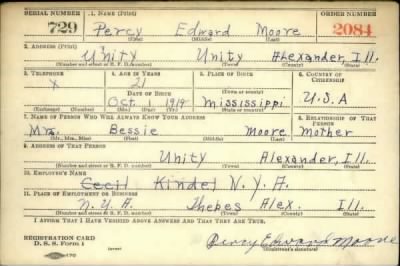 SERIAL NUMBER 1. NAME (Print) ORDER NUMBER
729 Percy Edward Moore 2084
(First) (Middle) (Last)
2. ADDRESS (Print)
Unity Unity Alexander, Ill.
(Number and street or R. F. D. number) (Town) (County) (State)
3. TELEPHONE 4. AGE IN YEARS 5. PLACE OF BIRTH 6. COUNTRY OF CITIZENSHIP
X 21
DATE OF BIRTH (Town or county)
Oct 1 1919 Mississippi U.S.A
(Exchange) (Number) (Mo.) (Day) (Yr.) (State or country)
7. NAME OF PERSON WHO WILL ALWAYS KNOW YOUR ADDRESS 8. RELATIONSHIP OF THAT PERSON
Mrs. Bessie Moore Mother
(Mr., Mrs., Miss) (First) (Middle) (Last)
9. ADDRESS OF THAT PERSON
Unity Alexander, Ill.
(Number and street or R. F. D. number) (Town) (County) (State)
10. EMPLOYER'S NAME
Cecil Kindel N.Y.A.
11. PLACE OF EMPLOYMENT OR BUSINESS
N.Y.A. Thebes Alex. Ill.
(Number and street or R. F. D. number) (Town) (County) (State)
I AFFIRM THAT I HAVE VERIFIED ABOVE ANSWERS AND THAT THEY ARE TRUE.
REGISTRATION CARD
D. S. S. Form 1 Percy Edward Moore
(Registrant's signature)